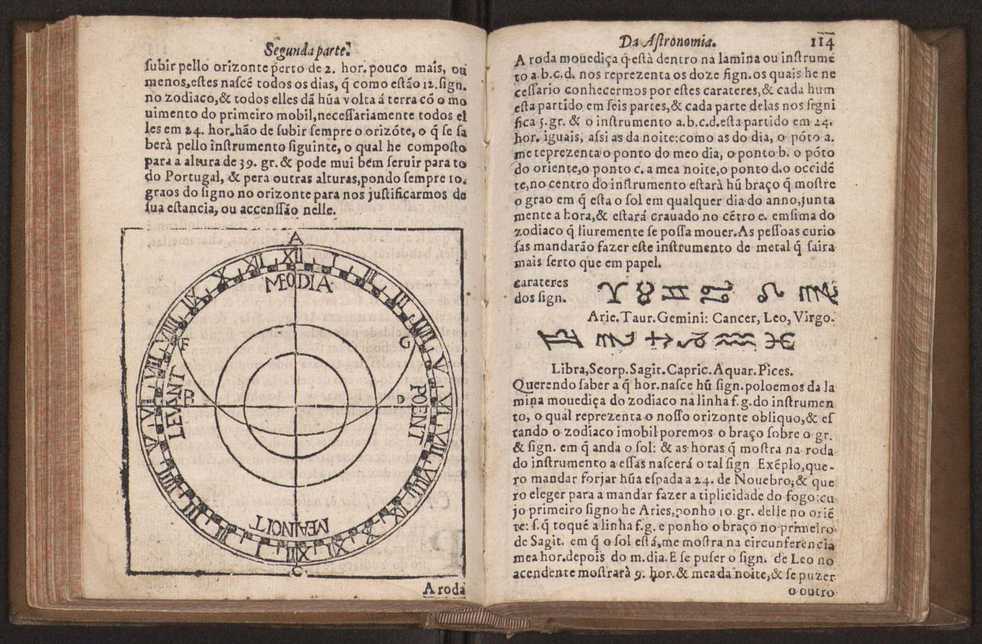 Segunda parte.
subir pello orizonte perto de 2. hor. pouco mais, ou
menos, estes nascẽ todos os dias, q̃ como estão 12. sign.
no zodiaco, & todos elles dã hũa volta á terra cõ o mo
uimento do primeiro mobil, necessariamente todos el
les em 24. hor. hão de subir sempre o orizõte, o q̃ se sa
berà pello instrumento siguinte, o qual he composto
para a altura de 39. gr. & pode mui bẽm seruir para to
do Portugal, & pera outras alturas, pondo sempre 10.
graos do signo no orizonte para nos justificarmos de
sua estancia, ou accenssão nelle.
A
XI XII I II III IIII V VI VII VIII IX X XI XII I II III IIII V VI VII VIII IX X
MEODIA
F
G
B
D
LEVANT
POENT
MEANOIT
C
A roda
Da Astronomia.
114
A roda mouediça q̃ està dentro na lamina ou instrumẽ
to a. b. c. d. nos reprezenta os doze sign. os quais he ne
cessario conhecermos por estes carateres, & cada hum
esta partido em seis partes, & cada parte delas nos segni
fica 5. gr. & o instrumento a. b. c. d. esta partido em 24.
hor. iguais, assi as da noite: como as do dia, o põto a.
me reprezenta o ponto do meo dia, o ponto b. o põto
do oriente, o ponto c. a mea noite, o ponto d. o occidẽ
te, no centro do instrumento estarà hũ braço q̃ mostre
o grao em q̃ esta o sol em qualquer dia do anno, junta
mente a hora, & estará crauado no cẽtro e. emsima do
zodiaco q̃ liuremente se possa mouer. As pessoas curio
sas mandarão fazer este instrumento de metal q̃ saira
mais serto que em papel.
carateres
dos sign.
♈ ♉ ♊ ♋ ♌ ♍
Arie. Taur. Gemini: Cancer, Leo, Virgo.
♎ ♏ ♐ ♑ ♒ ♓
Libra, Scorp. Sagit. Capric. Aquar. Pices.
Querendo saber a q̃ hor. nasce hũ sign. poloemos da la
mina mouediça do zodiaco na linha f. g. do instrumen
to, o qual reprezenta o nosso orizonte obliquo, & es
tando o zodiaco imobil poremos o braço sobre o gr.
& sign. em q̃ anda o sol: & as horas q̃ mostra na roda
do instrumento a essas nascerá o tal sign Exẽplo, que-
ro mandar forjar hũa espada a 24. de Nouebro, & que
ro eleger para a mandar fazer a tiplicidade do fogo: cu
jo primeiro signo he Aries, ponho 10. gr. delle no oriẽ
te: s. q̃ toque a linha f. g. e ponho o braço no primeiro
de Sagit. em q̃ o sol está, me mostra na circunferencia
mea hor. depois do m. dia. E se puser o sign. de Leo no
acendente mostrarà 9. hor. & mea da noite, & se puzer
o outro